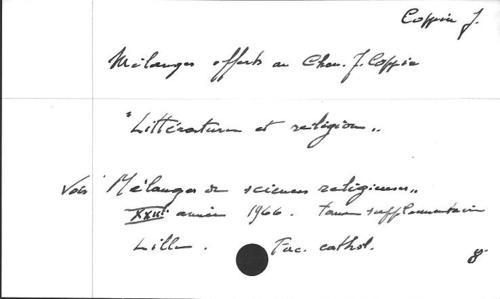 Coppin J.
Mélanges offerts au Chan. J. Coppin
"Littérature et religion„
Voir Mélanges de sciences religieuses„
XXIIIe année 1966. Tome supplémentaire
Lille. Fac. cathol.
8°